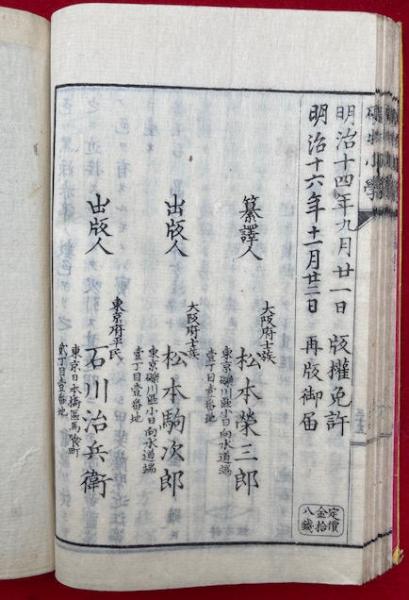 明治十四年九月廿一日 版權免許
明治十六年十一月廿二日 再版御届
定價
金拾
八錢
大阪府士族
纂譯人 松本榮三郎
東京礫川區小日向水道端
壹丁目壹番地
大阪府士族
出版人 松本駒次郎
東京礫川區小日向水道端
壹丁目壹番地
東京府平民
出版人 石川治兵衛
東京日本橋區馬喰町
貳丁目壹番地